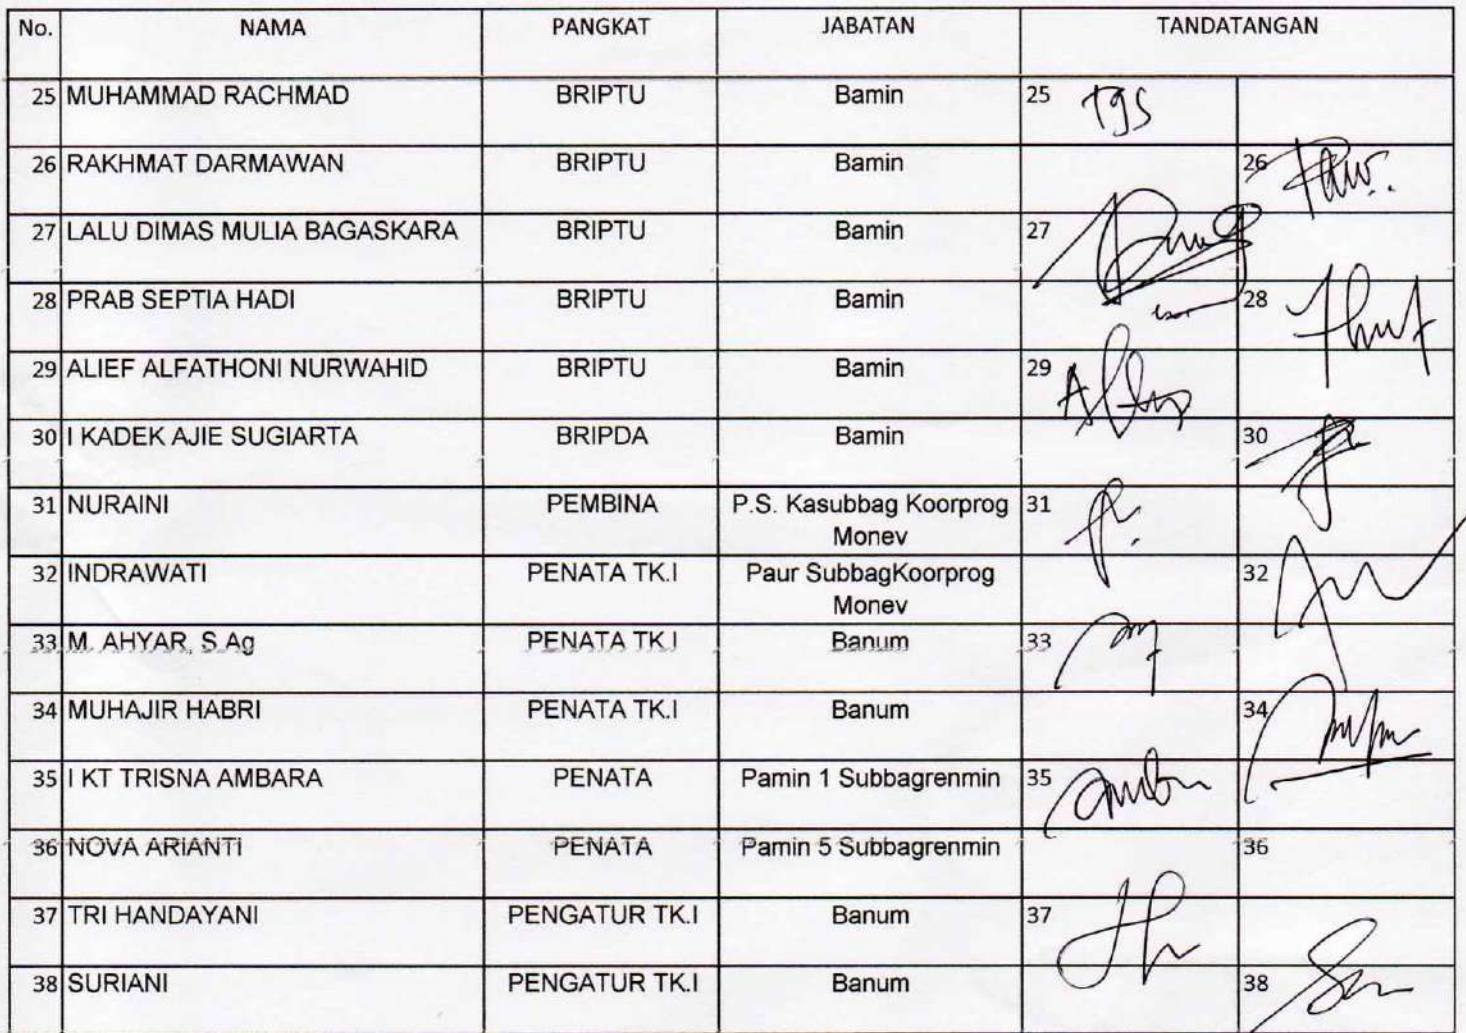 No. NAMA PANGKAT JABATAN TANDATANGAN
25 MUHAMMAD RACHMAD BRIPTU Bamin 25 Tgs
26 RAKHMAT DARMAWAN BRIPTU Bamin 26
27 LALU DIMAS MULIA BAGASKARA BRIPTU Bamin 27
28 PRAB SEPTIA HADI BRIPTU Bamin 28
29 ALIEF ALFATHONI NURWAHID BRIPTU Bamin 29
30 I KADEK AJIE SUGIARTA BRIPDA Bamin 30
31 NURAINI PEMBINA P.S. Kasubbag Koorprog 31
Monev
32 INDRAWATI PENATA TK.I Paur SubbagKoorprog 32
Monev
33 M. AHYAR, S.Ag PENATA TK.I Banum 33
34 MUHAJIR HABRI PENATA TK.I Banum 34
35 I KT TRISNA AMBARA PENATA Pamin 1 Subbagrenmin 35
36 NOVA ARIANTI PENATA Pamin 5 Subbagrenmin 36
37 TRI HANDAYANI PENGATUR TK.I Banum 37
38 SURIANI PENGATUR TK.I Banum 38